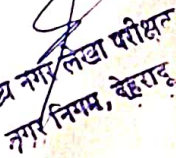 नगर लेखा परीक्षक
नगर निगम, देहरादू